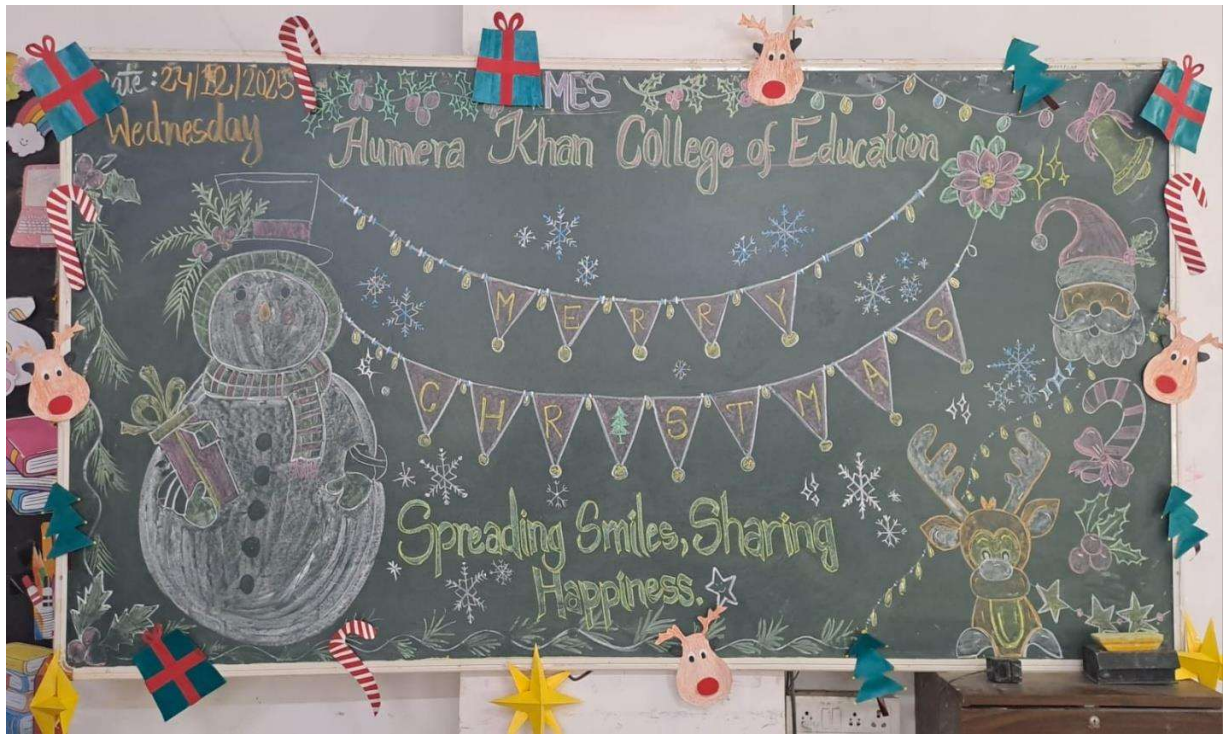 Date: 24/12/2025
Wednesday
MES
Humera Khan College of Education
MERRY
CHR STMAS
Spreading Smiles, Sharing
Happiness.